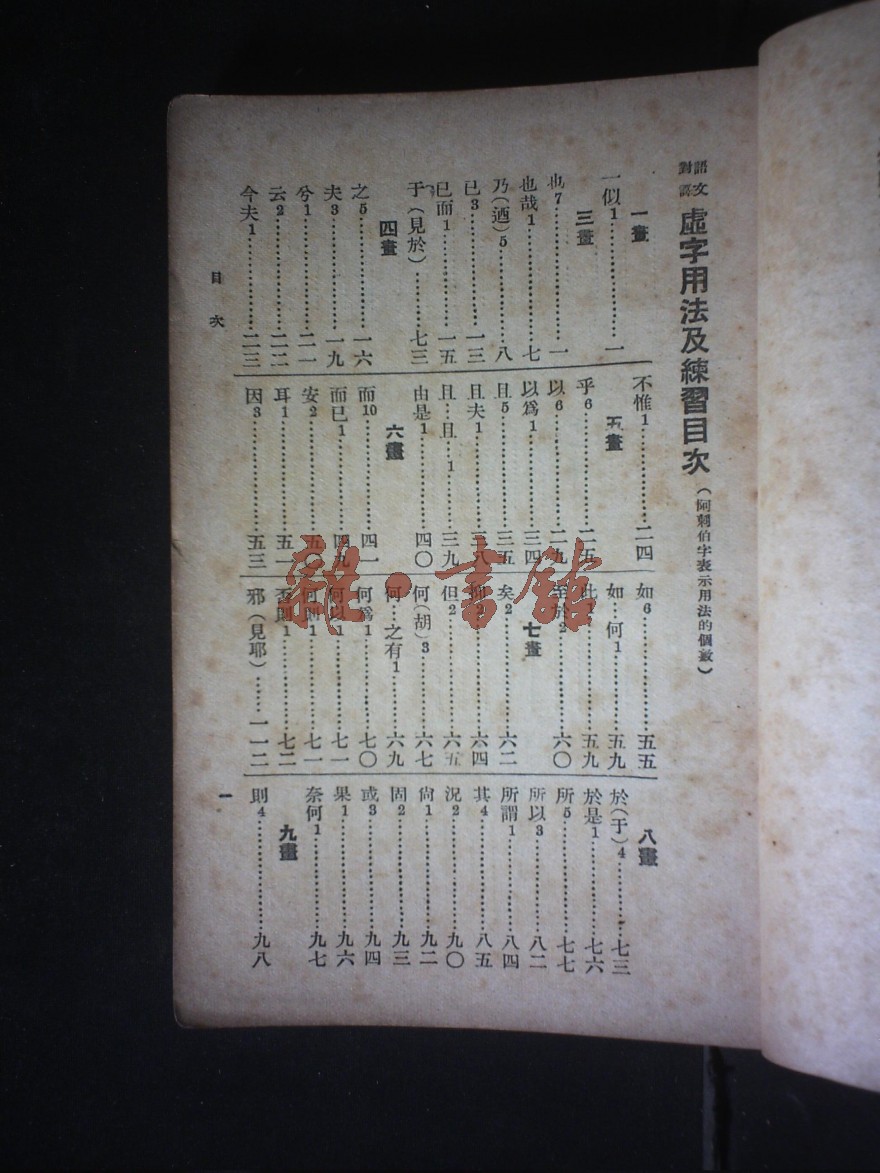 語文對譯 虛字用法及練習目次(阿剌伯字表示用法的個數)
一畫
一似1……一
三畫
也7……一
也哉1……七
乃(迺)5……八
已3……一三
已而1……一五
于(見於)……七三
四畫
之5……一六
夫3……一九
兮1……二一
云2……二二
今夫1……二三
不惟1……二四
五畫
乎6……二五
以6……二九
以爲1……三四
且5……三五
且夫1……三八
且…且…1……三九
由是1……四〇
六畫
而10……四一
而已1……四九
安2……五〇
耳1……五一
因3……五三
如6……五五
如…何1……五九
此1……五九
至於2……六〇
七畫
矣2……六二
抑2……六四
但2……六五
何(胡)3……六七
何…之有1……六九
何爲1……七〇
何以1……七一
何則1……七一
否則1……七二
邪(見耶)……一一二
八畫
於(于)4……七三
於是1……七六
所5……七七
所以3……八二
所謂1……八四
其4……八五
況2……九〇
尙1……九二
固2……九三
或3……九四
果1……九六
奈何1……九七
九畫
則4……九八
目次
一
雜·書館